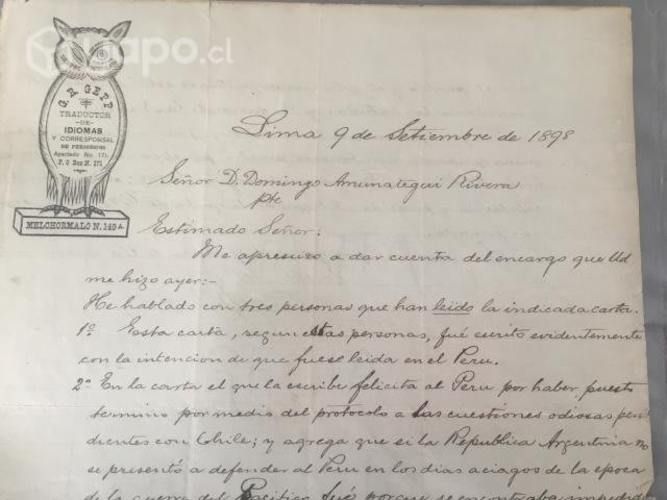 yapo.cl
G. R. GEPP
TRADUCTOR
-DE-
IDIOMAS
Y CORRESPONSAL
DE PERIODICOS
Apartado No. 171
P. O Box N. 171
MELCHORMALO N. 149 A.
Lima 9 de Setiembre de 1898
Señor D. Domingo Amunategui Rivera
pte
Estimado Señor:
Me apresuro a dar cuenta del encargo que Ud
me hizo ayer:-
He hablado con tres personas que han leido la indicada carta.
1º Esta carta, segun estas personas, fué escrito evidentemente
con la intencion de que fuese leida en el Peru.
2º En la carta el que la escribe felicita al Peru por haber puesto
termino por medio del protocolo a las cuestiones odiosas pen-
dientes con Chile; y agrega que si la Republica Argentina no
se presentó a defender al Peru en los dias aciagos de la epoca
de la guerra del Pacifico fué porque se encontraba impedida